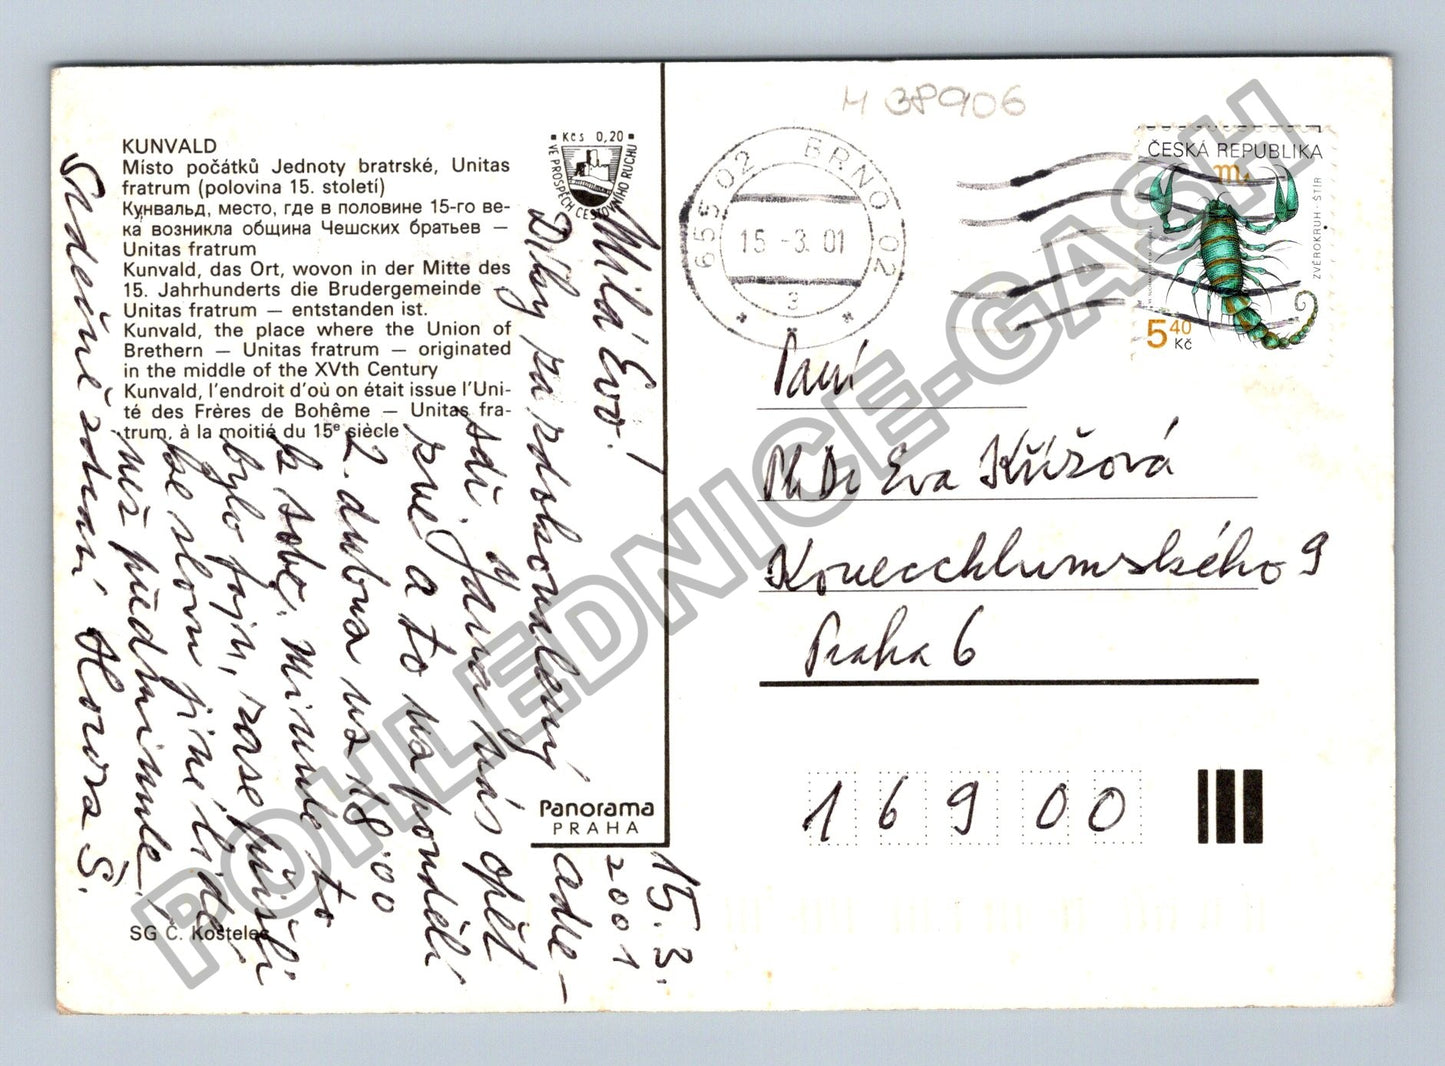 KUNVALD
Místo počátků Jednoty bratrské, Unitas
fratrum (polovina 15. století)
Кунвальд, место, где в половине 15-го ве-
ка возникла община Чешских братьев —
Unitas fratrum
Kunvald, das Ort, wovon in der Mitte des
15. Jahrhunderts die Brudergemeinde —
Unitas fratrum — entstanden ist.
Kunvald, the place where the Union of
Brethern — Unitas fratrum — originated
in the middle of the XVth Century
Kunvald, l'endroit d'où on était issue l'Uni-
té des Frères de Bohême — Unitas fra-
trum, à la moitié du 15e siècle
Kčs 0,20
VE PROSPĚCH CESTOVNÍHO RUCHU
15. 3.
2001
Milá Evo!
Díky za zdokonalený adre-
sář. Jana nás opět
zve a to na pondělí
2. dubna na 18.00
k sobě, minule to
bylo fajn, zase přišli
jiní lidé
než předminule.
Srdečně zdraví Š.
Panorama
PRAHA
SG Č. Kostelec
M 38906
655 02 BRNO 02
15.-3.01
3
ČESKÁ REPUBLIKA
ZVĚROKRUH - ŠTÍR
5 40
Kč
Paní
PhDr Eva Křížová
Konecchlumského 9
Praha 6
16900
POHLEDNICE-GASH